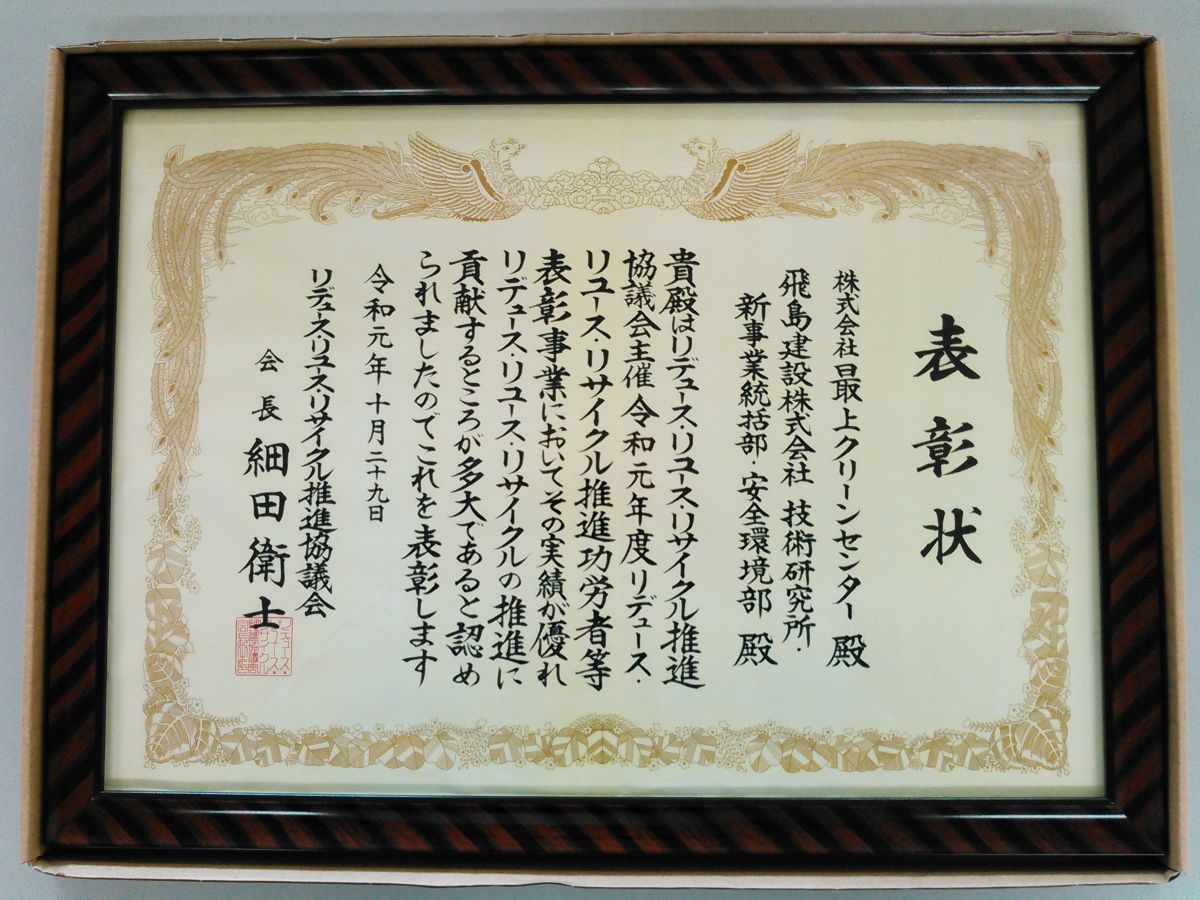 表彰状
株式会社最上クリーンセンター 殿
飛島建設株式会社 技術研究所・
新事業統括部・安全環境部 殿
貴殿はリデュース・リユース・リサイクル推進
協議会主催令和元年度リデュース・
リユース・リサイクル推進功労者等
表彰事業においてその実績が優れ
リデュース・リユース・リサイクルの推進に
貢献するところが多大であると認め
られましたのでこれを表彰します
令和元年十月二十九日
リデュースリユースリサイクル推進協議会
会長 細田衛士